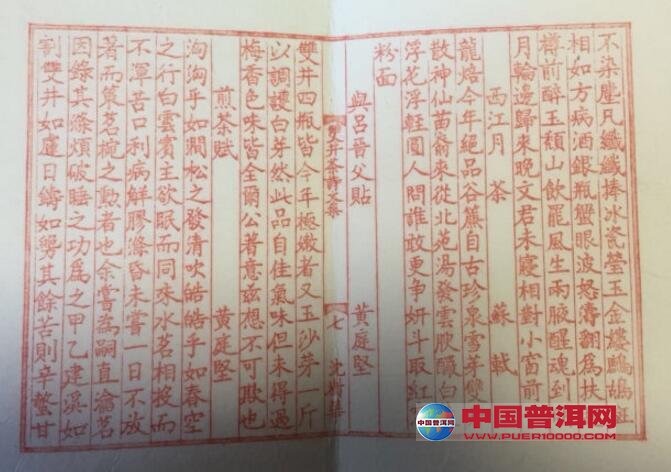 不染塵凡纖纖捧冰瓷瑩玉金縷鷓鴣斑
相如方病酒銀瓶蟹眼波怒濤翻為扶
樽前醉玉頹山飲罷風生兩腋醒魂到
月輪邊歸來晚文君未寢相對小窗前
西江月 茶 蘇軾
龍焙今年絕品谷簾自古珍泉雪芽雙
散神仙苗裔來從北苑湯發雲腴釅白
浮花浮輕圓人間誰敢更爭妍斗取紅
粉面
與呂晉父貼 黃庭堅
雙井茶詩文集 七
雙井四瓶皆今年極嫩者又玉沙芽一斤
以調護白芽然此品自佳氣味但未得過
梅香色味皆全爾公著意茲想不可欺也
煎茶賦 黃庭堅
洶洶乎如澗松之發清吹皓皓乎如春空
之行白雲賓主欲眠而同味水茗相投而
不渾苦口利病解膠滌昏未嘗一日不放
著而策茗椀之勳者也余嘗為嗣直瀹茗
因錄其滌煩破睡之功為之甲乙建溪如
割雙井如日鑄如其餘苦則辛螫甘
中国普洱网
WWW.PUER10000.COM